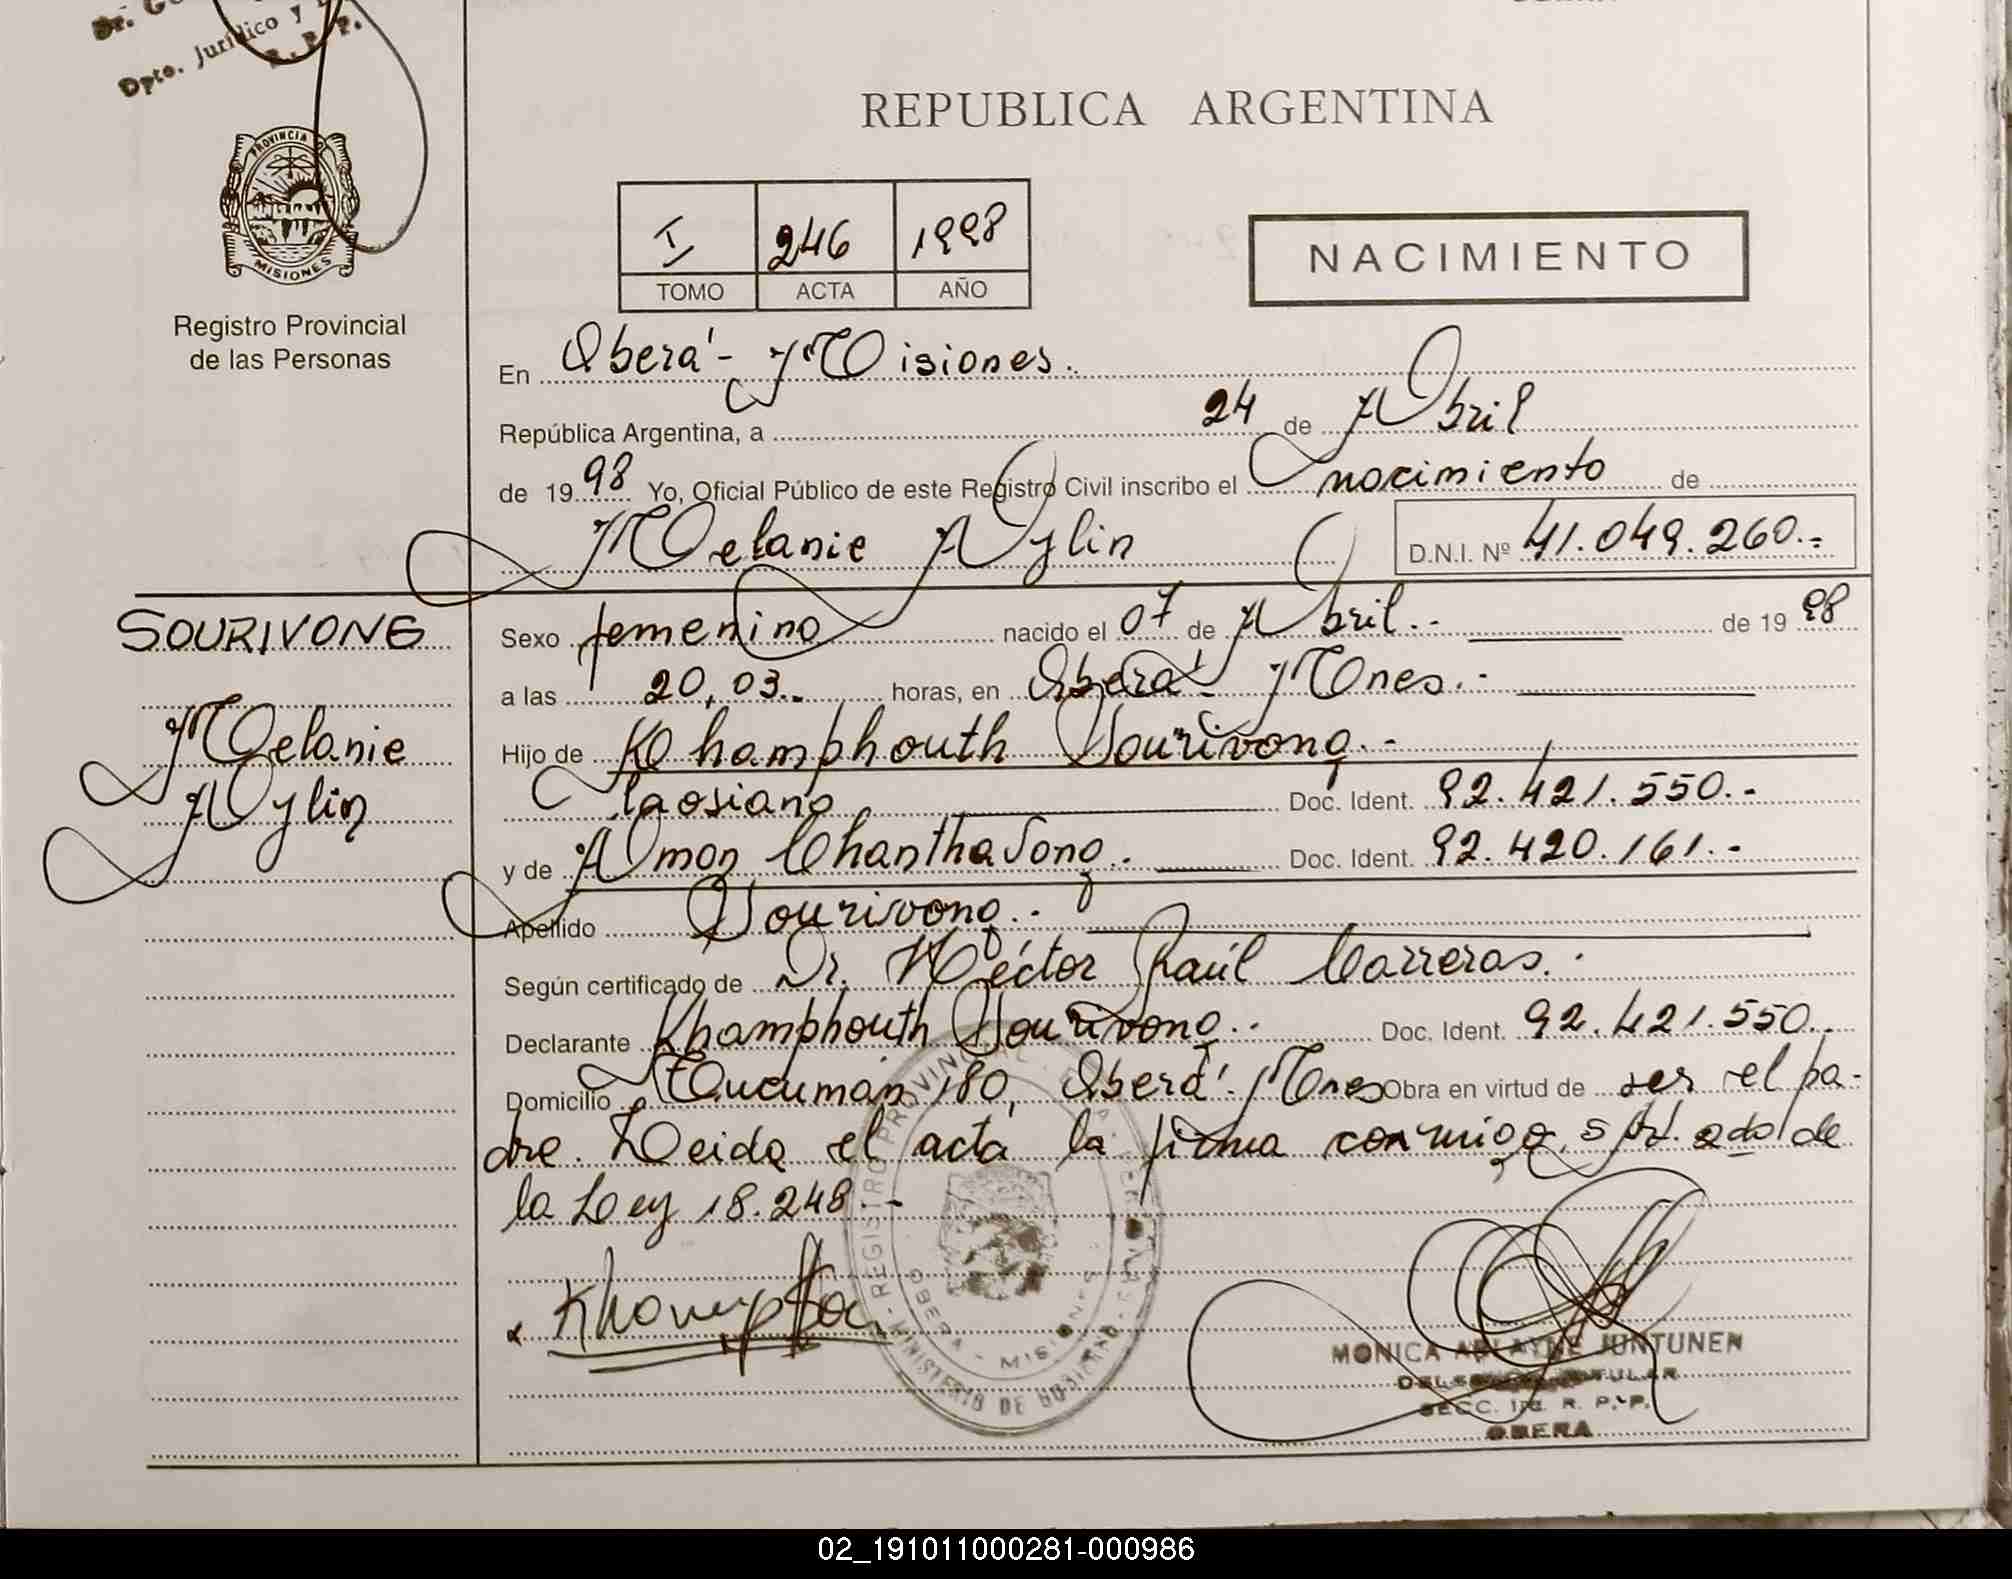 Dpto. Jurídico y
R. P. P.
PROVINCIA
MISIONES
Registro Provincial
de las Personas
REPUBLICA ARGENTINA
I 246 1998
TOMO ACTA AÑO
NACIMIENTO
En Oberá - Misiones.
República Argentina, a 24 de Abril
de 1998 Yo, Oficial Público de este Registro Civil inscribo el nacimiento de
Melanie Aylin D.N.I. Nº 41.049.260.-
SOURIVONG
Melanie
Aylin
Sexo femenino nacido el 07 de Abril.- de 1998
a las 20,03.- horas, en Oberá - Mnes.-
Hijo de Khamphouth Sourivong.-
laosiano Doc. Ident. 92.421.550.-
y de Amon Chanthavong.- Doc. Ident. 92.420.161.-
Apellido Sourivong.-
Según certificado de Dr. Héctor Raúl Carreras.-
Declarante Khamphouth Sourivong.- Doc. Ident. 92.421.550.-
Domicilio Tucumán 180, Oberá - Mnes Obra en virtud de ser el pa-
dre. Leida el acta la firma conmigo, s/ de
la Ley 18.248.-
REGISTRO PROVINCIAL
OBERA - MISIONES
MINISTERIO DE
MONICA ARLAYNE JUNTUNEN
R. P. P.
OBERA
02_191011000281-000986